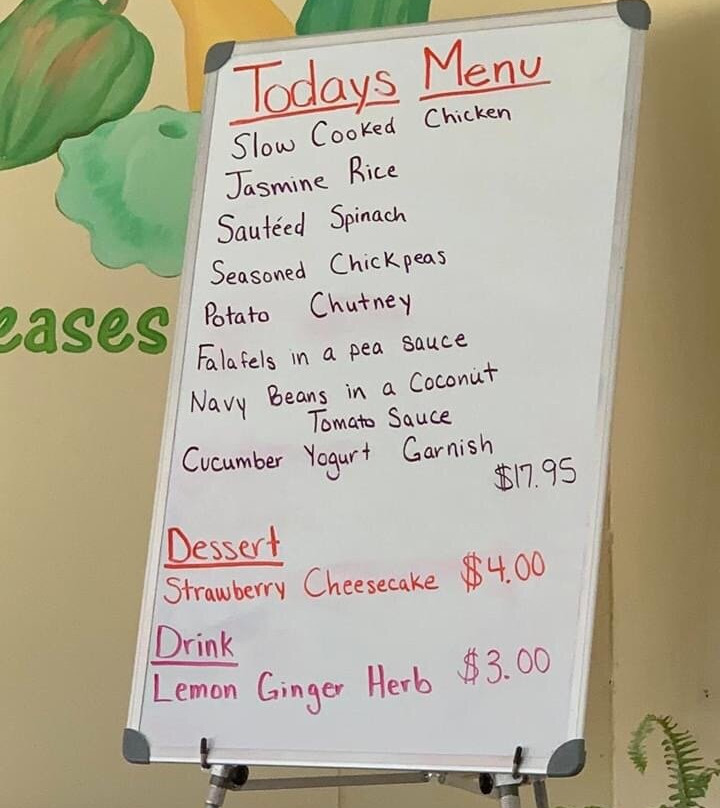 Todays Menu
Slow Cooked Chicken
Jasmine Rice
Sautéed Spinach
Seasoned Chickpeas
Potato Chutney
Falafels in a pea sauce
Navy Beans in a Coconut
Tomato Sauce
Cucumber Yogurt Garnish
$17.95
Dessert
Strawberry Cheesecake $4.00
Drink
Lemon Ginger Herb $3.00
eases